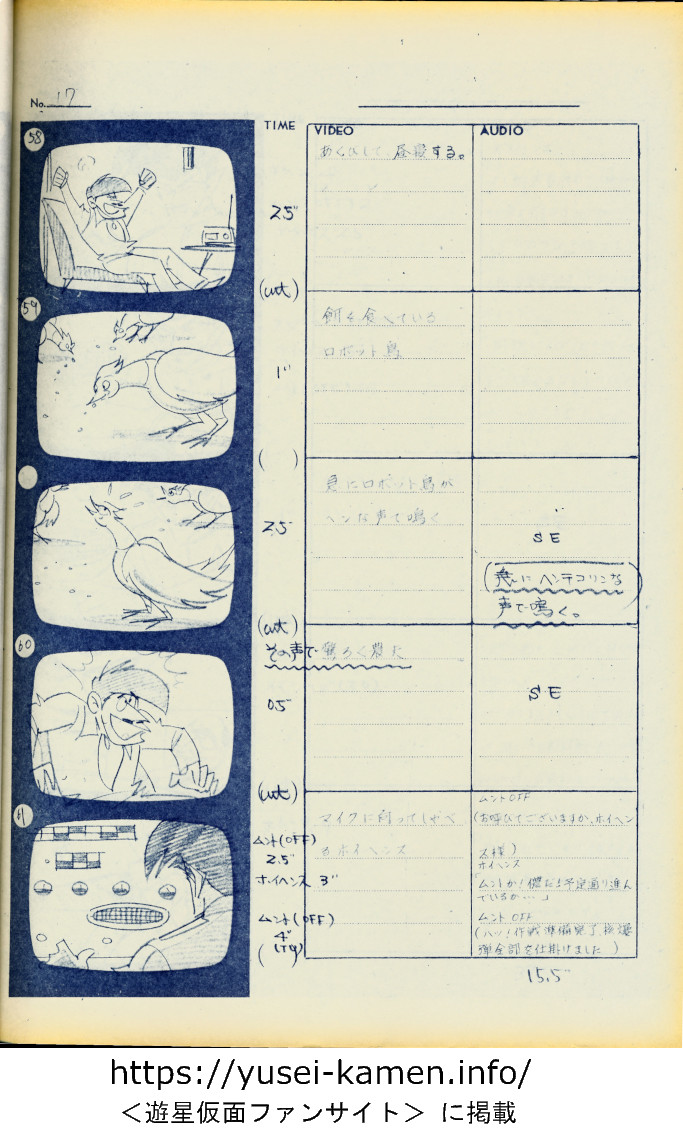 No. 17
TIME VIDEO AUDIO
58
あくびして、昼寝する。
2.5"
(cut)
59
餌を食べている
ロボット鳥
1"
( )
急にロボット鳥が
ヘンな声で鳴く
2.5
SE
急にヘンテコリンな
声で鳴く。
(cut)
60
その声で驚ろく農夫
0.5"
SE
(cut)
61
マイクに向ってしゃべ
るホイヘンス
ムント(OFF)
2.5"
ホイヘンス 3"
ムント(OFF)
4"
ムント OFF
(お呼びでございますか、ホイヘン
ス様)
ホイヘンス
ムント OFF
(ハッ!作戦準備完了
弾全部を仕掛けました)
15.5"
https://yusei-kamen.info/
<遊星仮面ファンサイト> に掲載